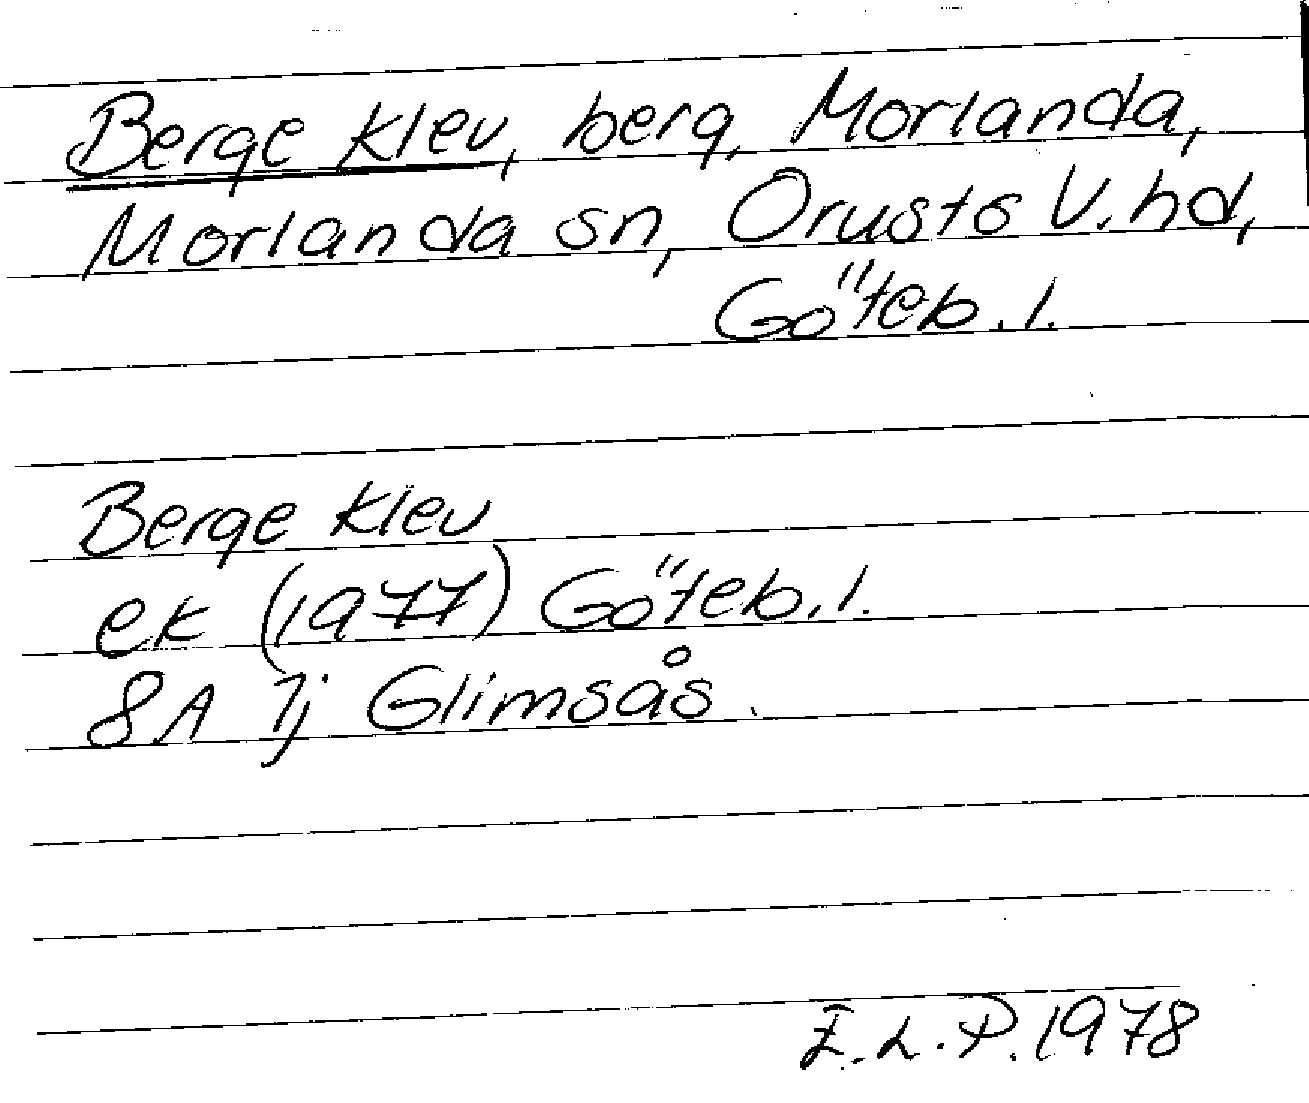 Berge klev, berg, Morlanda,
Morlanda sn, Orusts V. hd,
Göteb. l.
Berge klev
ek (1977) Göteb. l.
8A 7j Glimsås.
E.L.P. 1978